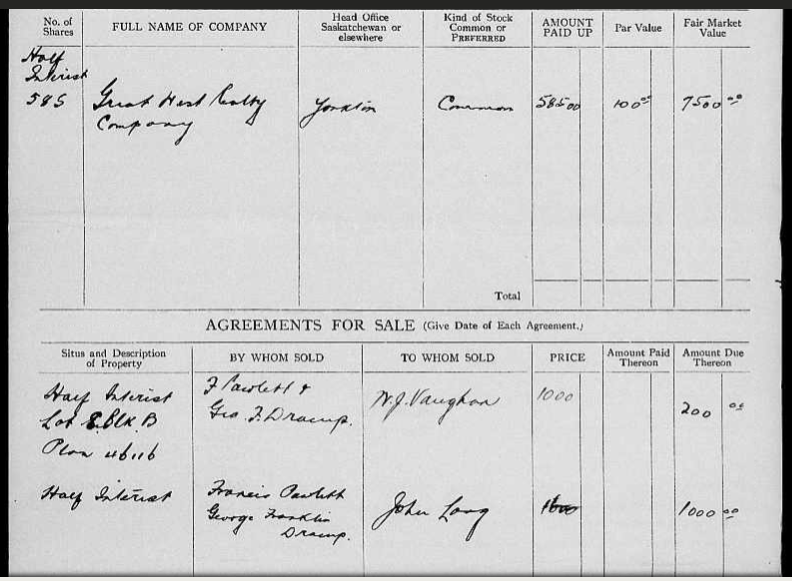 No. of Shares FULL NAME OF COMPANY Head Office Saskatchewan or elsewhere Kind of Stock Common or PREFERRED AMOUNT PAID UP Par Value Fair Market Value
Half
Interist
585 Great West Realty Yorkton Common 585 00 100 00 7500 00
Company
Total
AGREEMENTS FOR SALE (Give Date of Each Agreement.)
Situs and Description of Property BY WHOM SOLD TO WHOM SOLD PRICE Amount Paid Thereon Amount Due Thereon
Half Interist F Pawlett & W. J. Vaughan 1000 200 00
Lot 8 Blk B Geo. F.
Plan
Half Interist Francis Pawlett John Long 1000 00
George Franklin